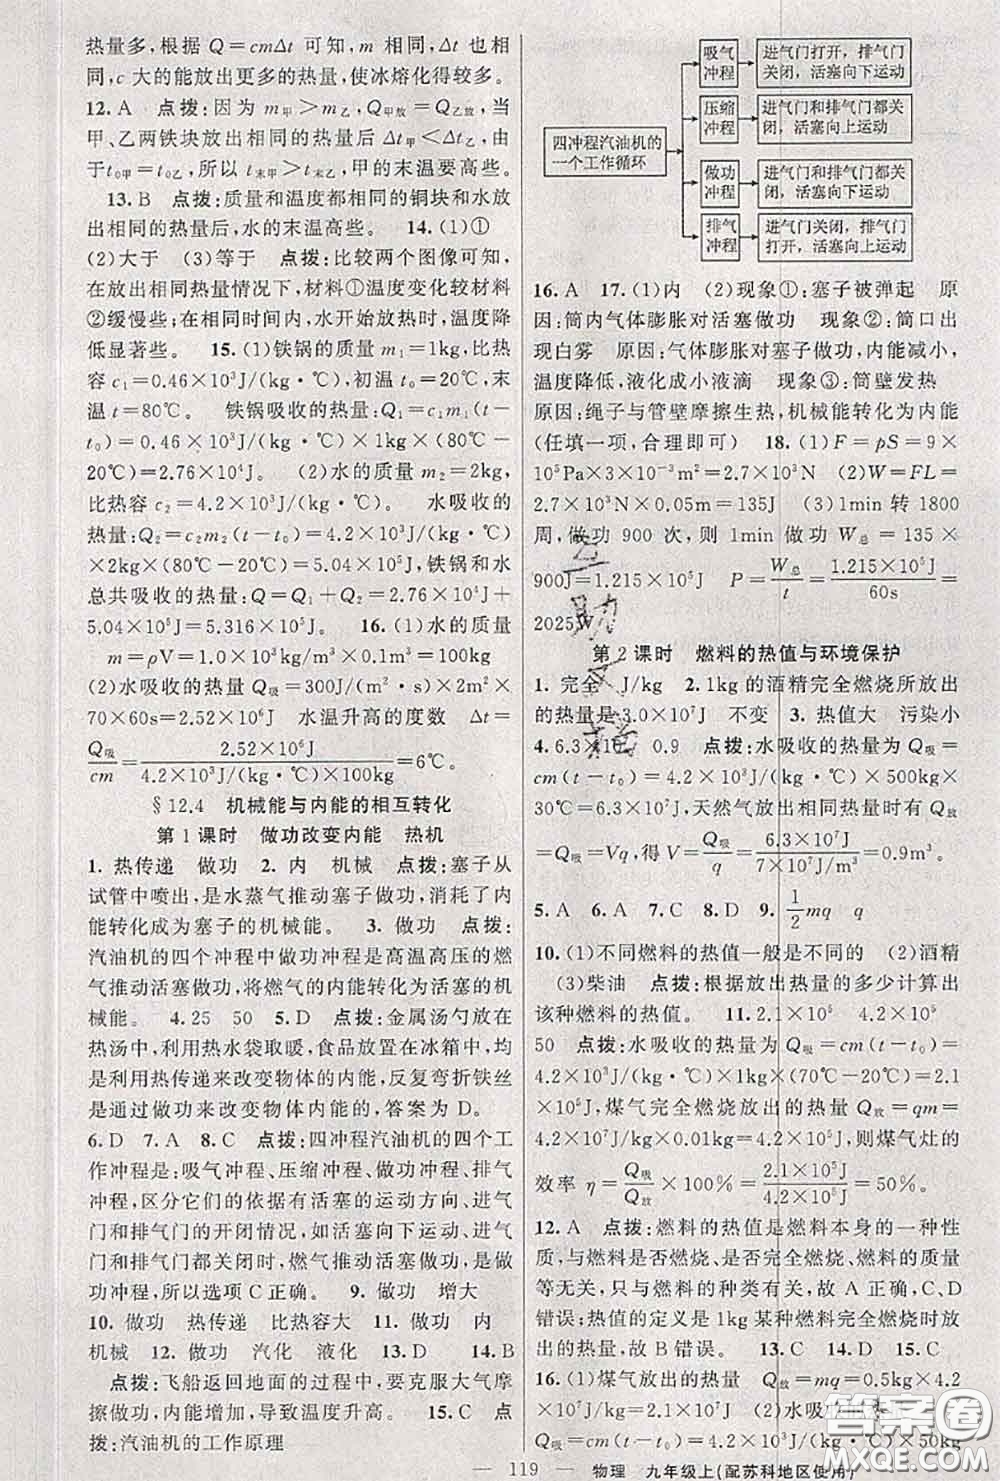 热量多,根据 Q=cmΔt 可知,m 相同,Δt 也相
同,c 大的能放出更多的热量,使冰熔化得较多。
12. A 点拨:因为 m甲＞m乙,Q甲放=Q乙放,当
甲、乙两铁块放出相同的热量后 Δt甲＜Δt乙,而
t0甲=t0乙,所以 t末甲＞t末乙,甲的末温要高些。
13. B 点拨:质量和温度都相同的铜块和水放
出相同的热量后,水的末温高些。 14. (1)①
(2)大于 (3)等于 点拨:比较两个图像可知,
在放出相同热量情况下,材料①温度变化较材料
②缓慢些;在相同时间内,水开始放热时,温度降
低显著些。 15. (1)铁锅的质量 m₁=1kg,比热
容 c₁=0.46×10³J/(kg·℃),初温 t₀=20℃,末
温 t=80℃。 铁锅吸收的热量:Q₁=c₁m₁(t-
t₀)=0.46×10³J/(kg·℃)×1kg×(80℃-
20℃)=2.76×10⁴J。 (2)水的质量 m₂=2kg,
比热容 c₂=4.2×10³J/(kg·℃) 水吸收的
热量:Q₂=c₂m₂(t-t₀)=4.2×10³J/(kg·℃)
×2kg×(80℃-20℃)=5.04×10⁵J,铁锅和水
总共吸收的热量:Q=Q₁+Q₂=2.76×10⁴J+
5.04×10⁵J=5.316×10⁵J。 16. (1)水的质量
m=ρV=1.0×10³kg/m³×0.1m³=100kg
(2)水吸收的热量 Q吸=300J/(m²·s)×2m²×
70×60s=2.52×10⁶J 水温升高的度数 Δt=
Q吸/cm=2.52×10⁶J/4.2×10³J/(kg·℃)×100kg=6℃。
§12.4 机械能与内能的相互转化
第1课时 做功改变内能 热机
1. 热传递 做功 2. 内 机械 点拨:塞子从
试管中喷出,是水蒸气推动塞子做功,消耗了内
能转化成为塞子的机械能。 3. 做功 点拨:
汽油机的四个冲程中做功冲程是高温高压的燃
气推动活塞做功,将燃气的内能转化为活塞的机
械能。 4. 25 50 5. D 点拨:金属汤勺放在
热汤中,利用热水袋取暖,食品放在冰箱中,均
是利用热传递来改变物体的内能,反复弯折铁丝
是通过做功来改变物体内能的,答案为 D。
6. D 7. A 8. C 点拨:四冲程汽油机的四个工
作冲程是:吸气冲程、压缩冲程、做功冲程、排气
冲程,区分它们的依据有活塞的运动方向、进气
门和排气门的开闭情况,如活塞向下运动、进气
门和排气门都关闭时,燃气推动活塞做功,是做
功冲程,所以选项 C 正确。 9. 做功 增大
10. 做功 热传递 比热容大 11. 做功 内
机械 12. 做功 汽化 液化 13. D 14. B
点拨:飞船返回地面的过程中,要克服大气摩
擦做功,内能增加,导致温度升高。 15. C 点
拨:汽油机的工作原理
四冲程汽油机的
一个工作循环
吸气
冲程
进气门打开,排气门
关闭,活塞向下运动
压缩
冲程
进气门和排气门都关
闭,活塞向上运动
做功
冲程
进气门和排气门都关
闭,活塞向下运动
排气
冲程
进气门关闭,排气门
打开,活塞向上运动
16. A 17. (1)内 (2)现象①:塞子被弹起 原
因:筒内气体膨胀对活塞做功 现象②:筒口出
现白雾 原因:气体膨胀对塞子做功,内能减小,
温度降低,液化成小液滴 现象③:筒壁发热
原因:绳子与管壁摩擦生热,机械能转化为内能
(任填一项,合理即可) 18. (1)F=pS=9×
10⁵Pa×3×10⁻³m²=2.7×10³N (2)W=FL=
2.7×10³N×0.05m=135J (3)1min 转 1800
周,做功 900 次,则 1min 做功 W总=135×
900J=1.215×10⁵J P=W总/t=1.215×10⁵J/60s=
2025W
第2课时 燃料的热值与环境保护
1. 完全 J/kg 2. 1kg的酒精完全燃烧所放出
的热量是3.0×10⁷J 不变 3. 热值大 污染小
4. 6.3×10⁷ 0.9 点拨:水吸收的热量为 Q吸=
cm(t-t₀)=4.2×10³J/(kg·℃)×500kg×
30℃=6.3×10⁷J,天然气放出相同热量时有 Q放
=Q吸=Vq,得 V=Q吸/q=6.3×10⁷J/7×10⁷J/m³=0.9m³。
5. A 6. A 7. C 8. D 9. 1/2mq q
10. (1)不同燃料的热值一般是不同的 (2)酒精
(3)柴油 点拨:根据放出热量的多少计算出
该种燃料的热值。 11. 2.1×10⁵ 4.2×10⁵
50 点拨:水吸收的热量为 Q吸=cm(t-t₀)=
4.2×10³J/(kg·℃)×1kg×(70℃-20℃)=2.1
×10⁵J,煤气完全燃烧放出的热量 Q放=qm=
4.2×10⁷J/kg×0.01kg=4.2×10⁵J,则煤气灶的
效率 η=Q吸/Q放×100%=2.1×10⁵J/4.2×10⁵J=50%。
12. A 点拨:燃料的热值是燃料本身的一种性
质,与燃料是否燃烧、是否完全燃烧、燃料的质量
等无关,只与燃料的种类有关,故 A 正确,C、D
错误;热值的定义是1kg某种燃料完全燃烧时放
出的热量,故 B 错误。 13. C 14. A 15. C
16. (1)煤气放出的热量 Q放=mq=0.5kg×4.2
×10⁷J/kg=2.1×10⁷J (2)水吸收的热量
Q吸=cm(t-t₀)=4.2×10³J/(kg·℃)
— 119 — 物理 九年级上(配苏科地区使用)
答案圈
MXQE.COM